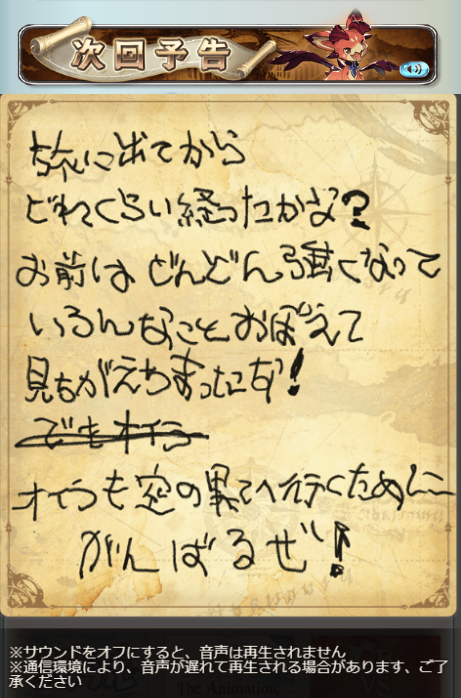 次回予告
旅に出てから
どれくらい経ったかな?
お前は どんどん強くなって
いろんなことおぼえて
見ちがえちまったな!
でもオイラ
オイラも空の果てへ行くために
がんばるぜ!
※サウンドをオフにすると、音声は再生されません
※通信環境により、音声が遅れて再生される場合があります、ご了
承ください
The Animation